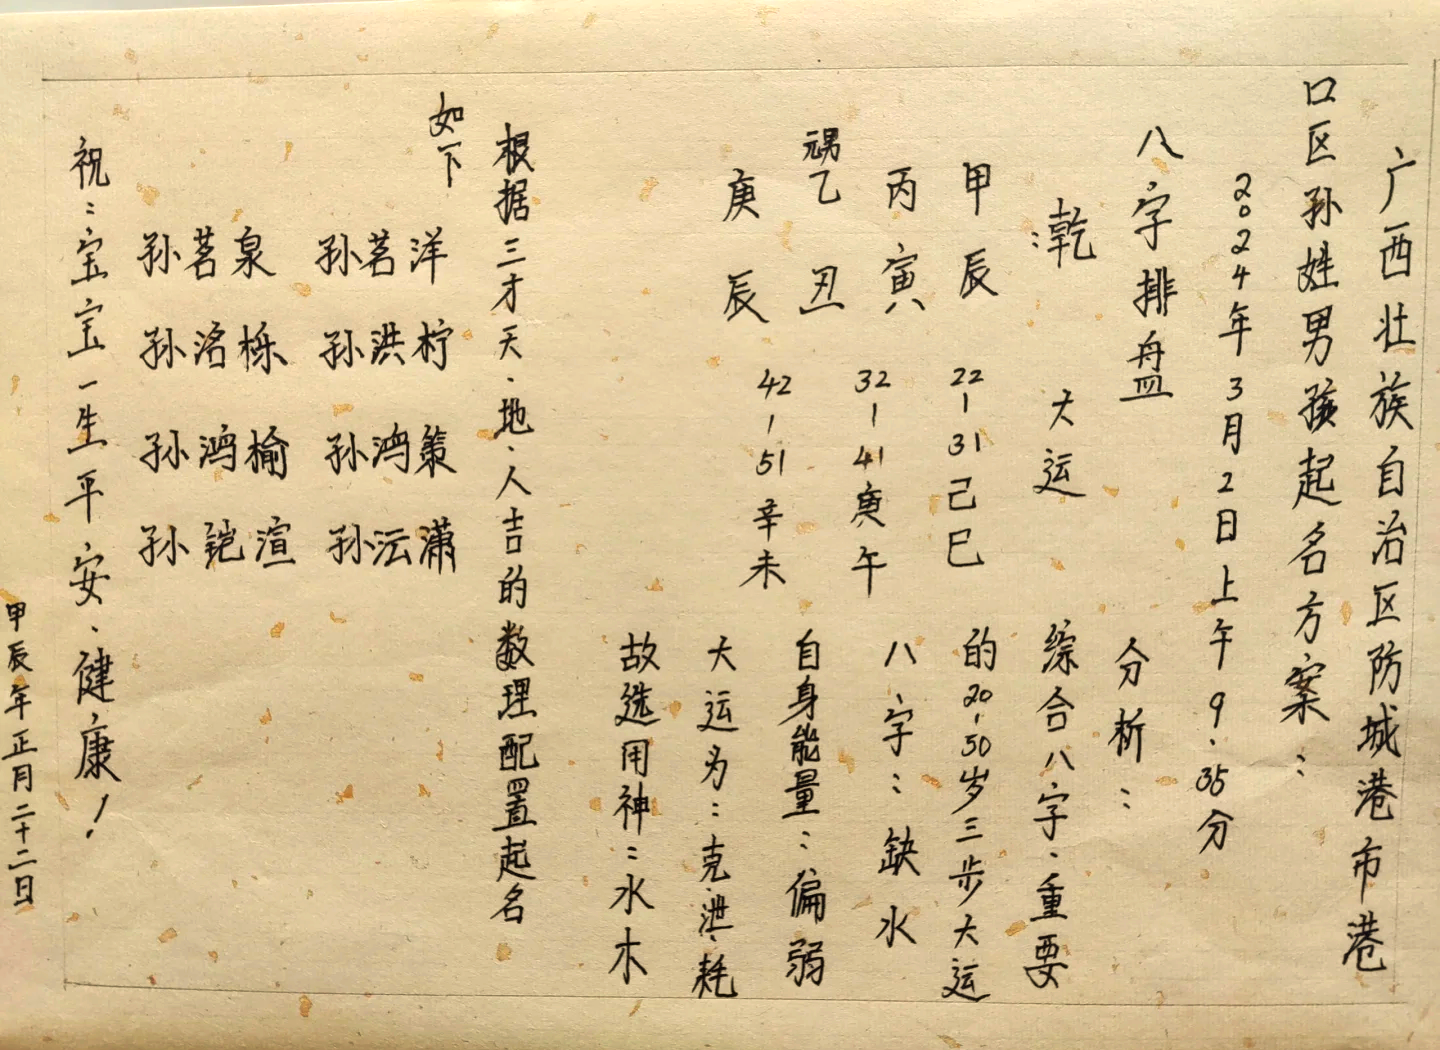 广西壮族自治区防城港市港
口区孙姓男孩起名方案：
2024年3月2日上午9.35分
八字排盘
乾：
甲辰
丙寅
乙丑
庚辰
大运
22-31己巳
32-41庚午
42-51辛未
分析：
综合八字、重要
的20-50岁三步大运
八字：缺水
自身能量：偏弱
大运为：克、泄、耗
故选用神：水木
根据三才天、地、人吉的数理配置起名
如下
孙茗洋 孙茗泉
孙洪柠 孙洺栎
孙鸿策 孙鸿榆
孙沄潇 孙铠渲
祝：宝宝一生平安、健康！
甲辰年正月二十二日